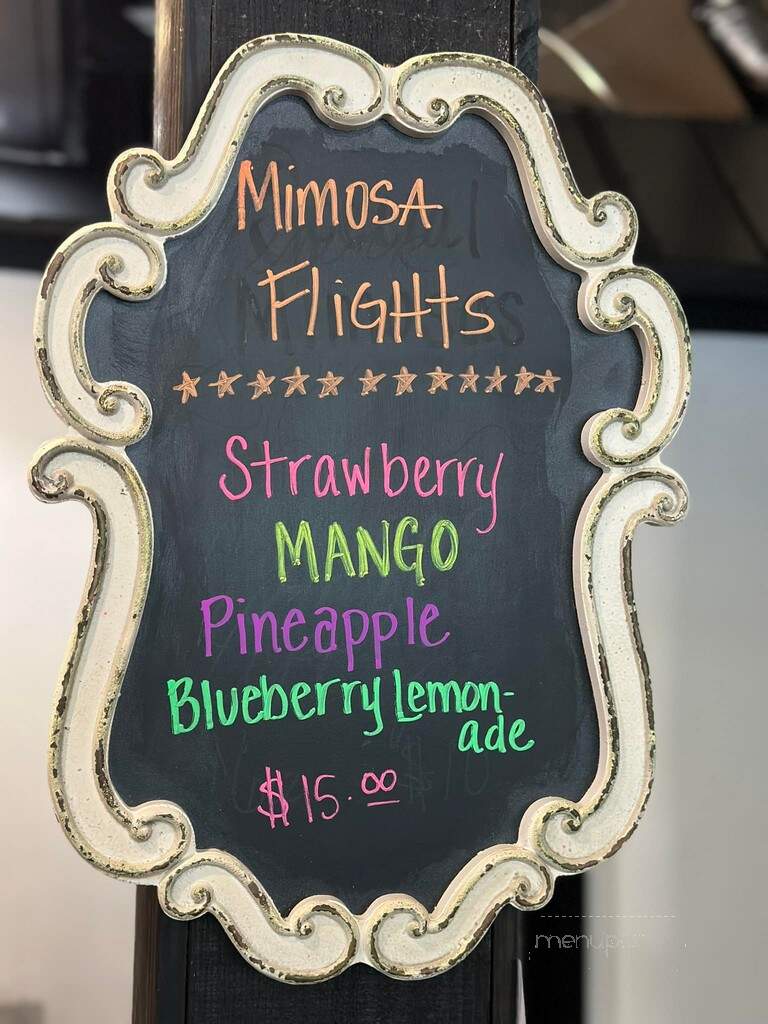 Mimosa
Flights
Strawberry
MANGO
Pineapple
Blueberry Lemon-
ade
$15.00